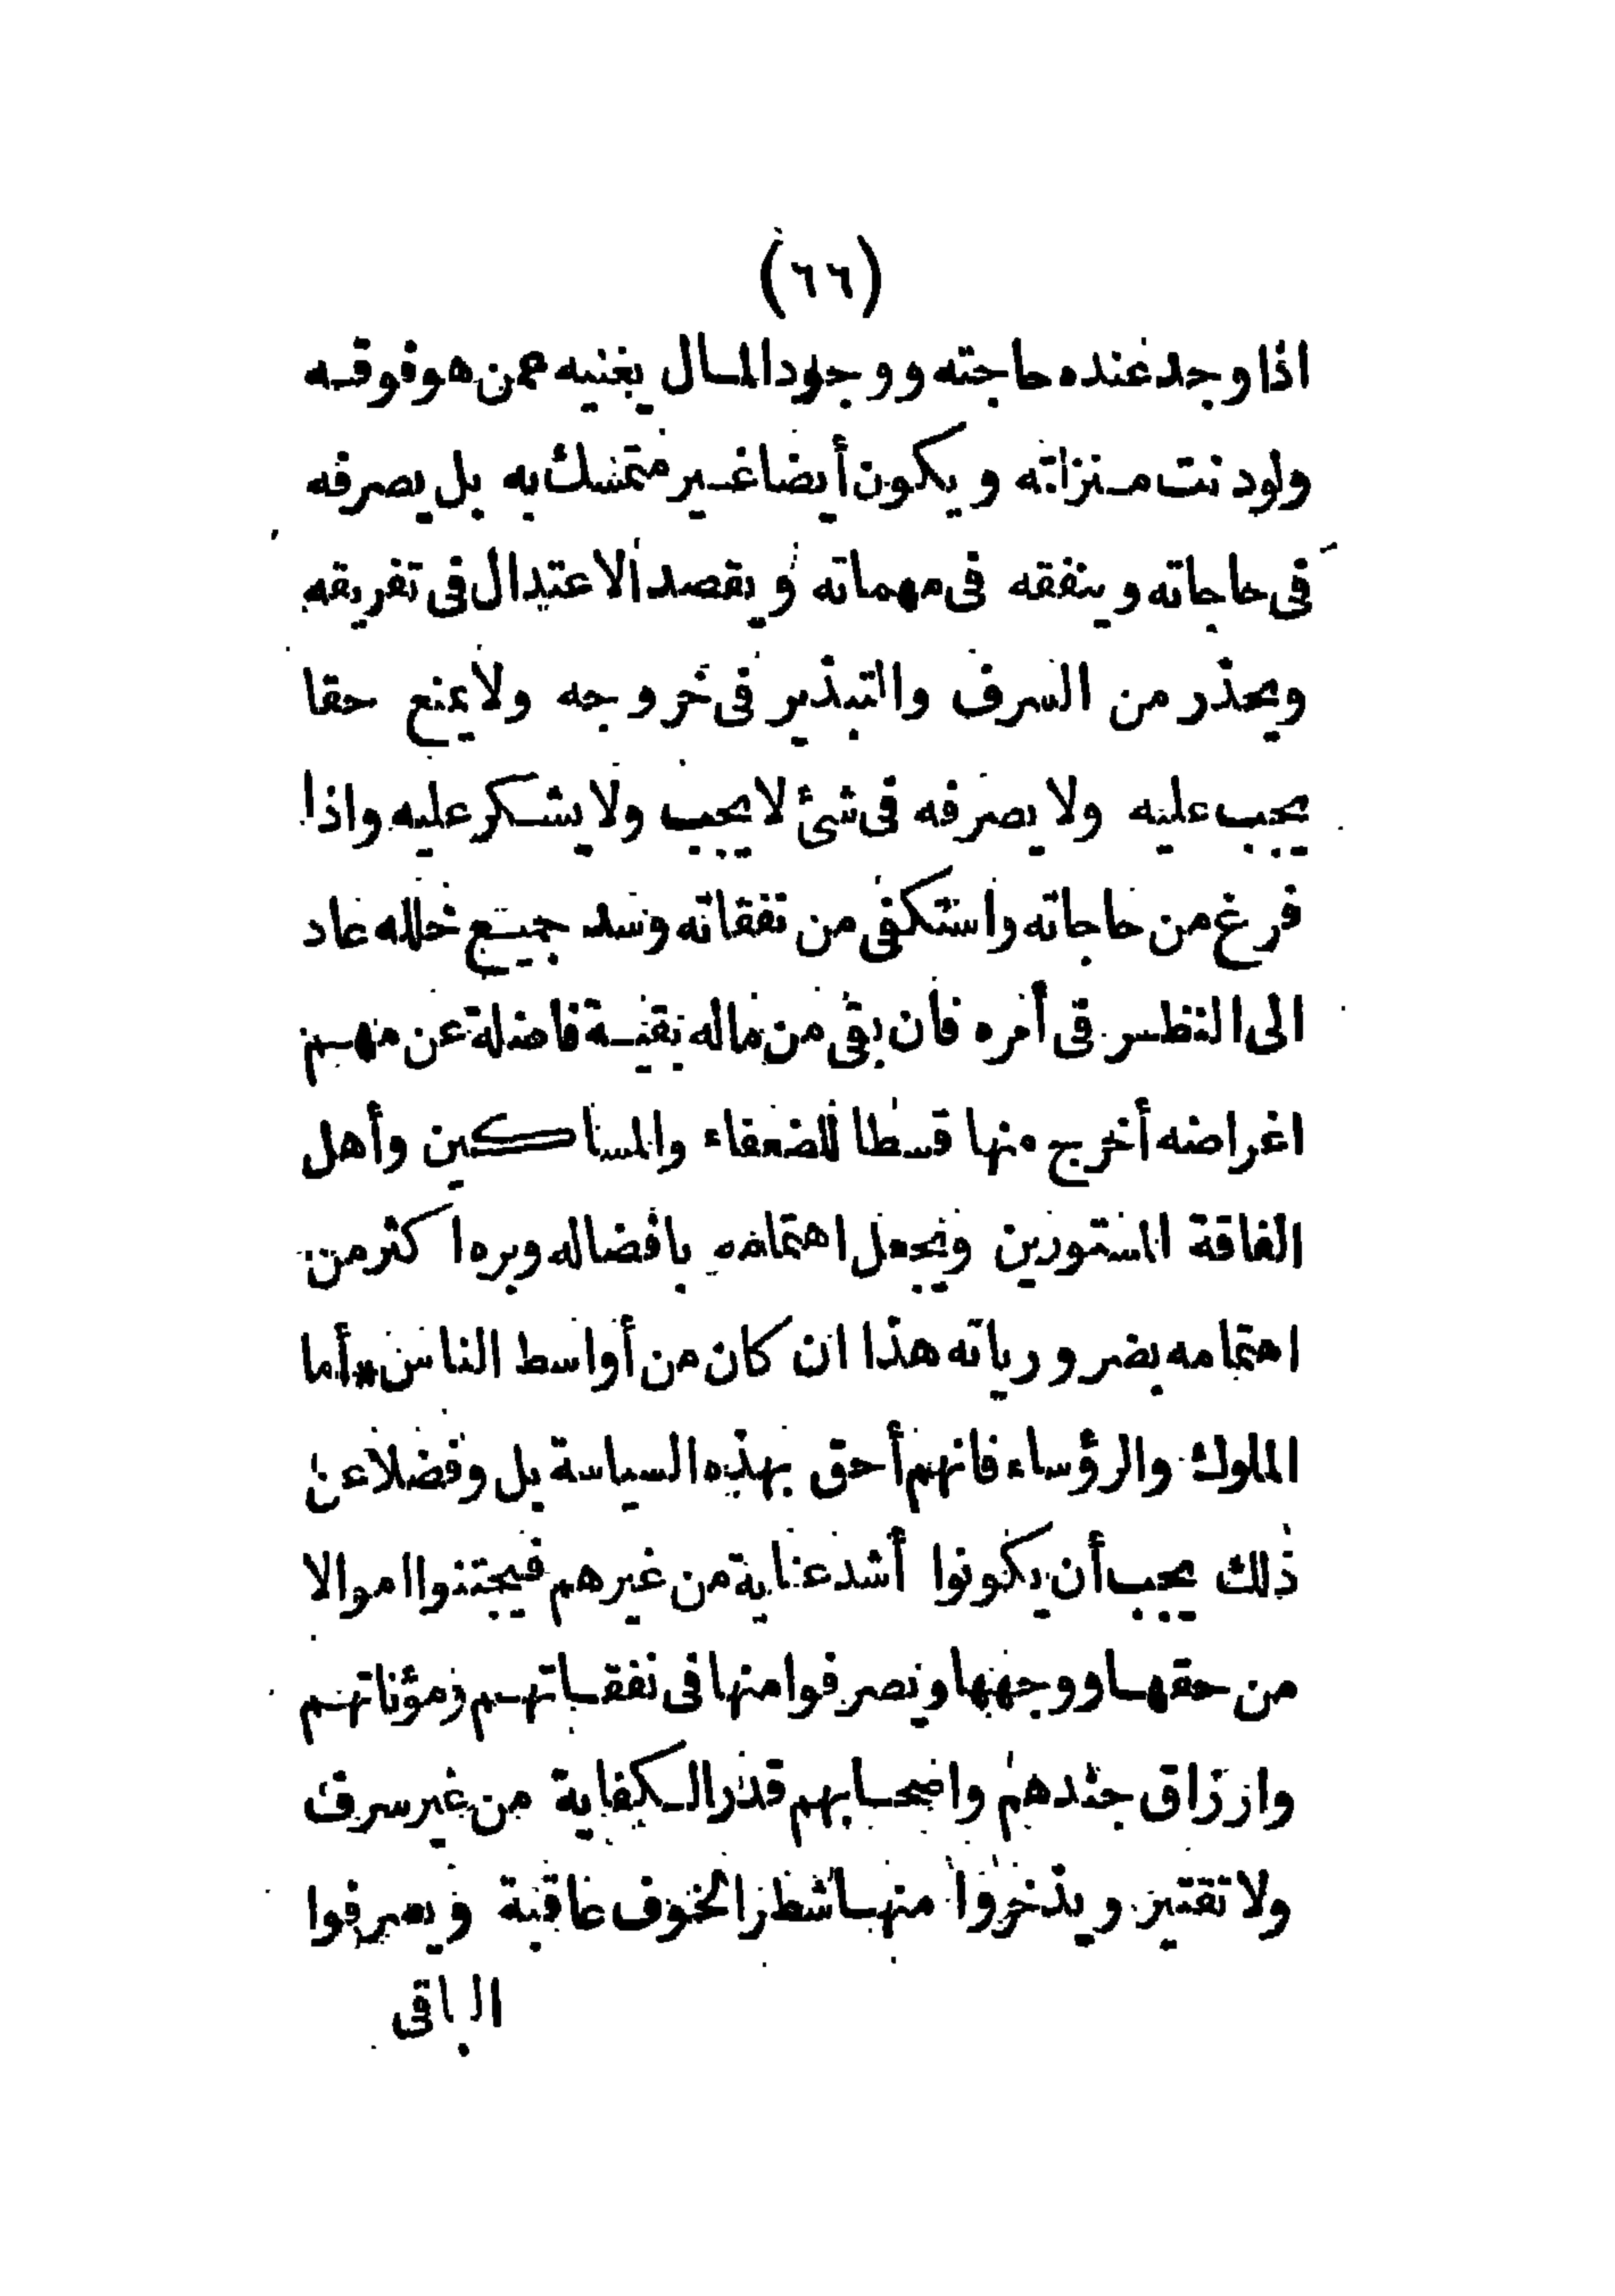 (٦٦)
اذا وجد عنده حاجته ووجود المال يغنيه عمن هو فوقه
ولو دنت منزلته ويكون أيضا غير متمسك به بل يصرفه
فى حاجاته وينفقه فى مهماته ويقصد الاعتدال فى تفريقه
ويحذر من السرف والتبذير فى خروجه ولا يمنع حقا
يجب عليه ولا يصرفه فى شئ لا يجب ولا يشكر عليه واذا
فرغ من حاجاته واستكفى من نفقاته وسد جميع خلله عاد
الى النظر فى أمره فان بقى من ماله بقية فاضلة عن مهم
اغراضه أخرج منها قسطا للضعفاء والمساكين وأهل
الفاقة المستورين ويجعل اهتمامه بافضاله وبره اكثر من
اهتمامه بضرورياته هذا ان كان من أواسط الناس * أما
الملوك والرؤساء فانهم أحق بهذه السياسة بل وفضلا عن
ذلك يجب أن يكونوا أشد عناية من غيرهم فيجتنوا اموالا
من حقها ووجهها ويصرفوا منها فى نفقاتهم ومؤناتهم
وارزاق جندهم واصحابهم قدر الكفاية من غير سرف
ولا تقتير ويذخروا منها شطرا لخوف عاقبة ويصرفوا
الباقى